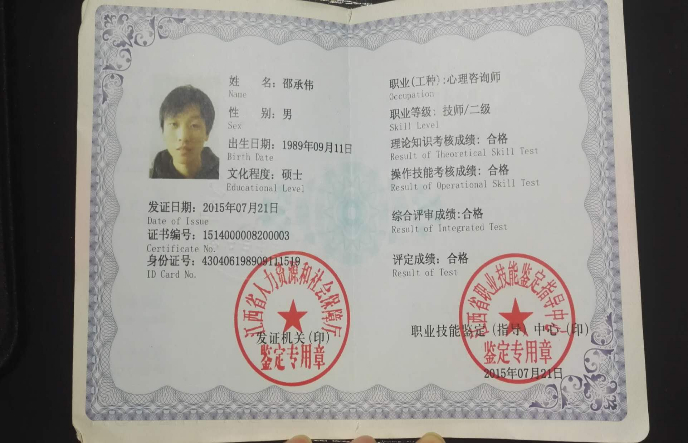 姓 名: 邵承伟
Name
性 别: 男
Sex
出生日期: 1989年09月11日
Birth Date
文化程度: 硕士
Educational Level
发证日期: 2015年07月21日
Date of Issue
证书编号: 1514000008200003
Certificate No.
身份证号: 430406198909111519
ID Card No.
江西省人力资源和社会保障厅
发证机关(印)
鉴定专用章
职业(工种): 心理咨询师
Occupation
职业等级: 技师/二级
Skill Level
理论知识考核成绩: 合格
Result of Theoretical Skill Test
操作技能考核成绩: 合格
Result of Operational Skill Test
综合评审成绩: 合格
Result of Integrated Test
评定成绩: 合格
Result of Test
江西省职业技能鉴定指导中心
职业技能鉴定(指导)中心(印)
鉴定专用章
2015年07月21日